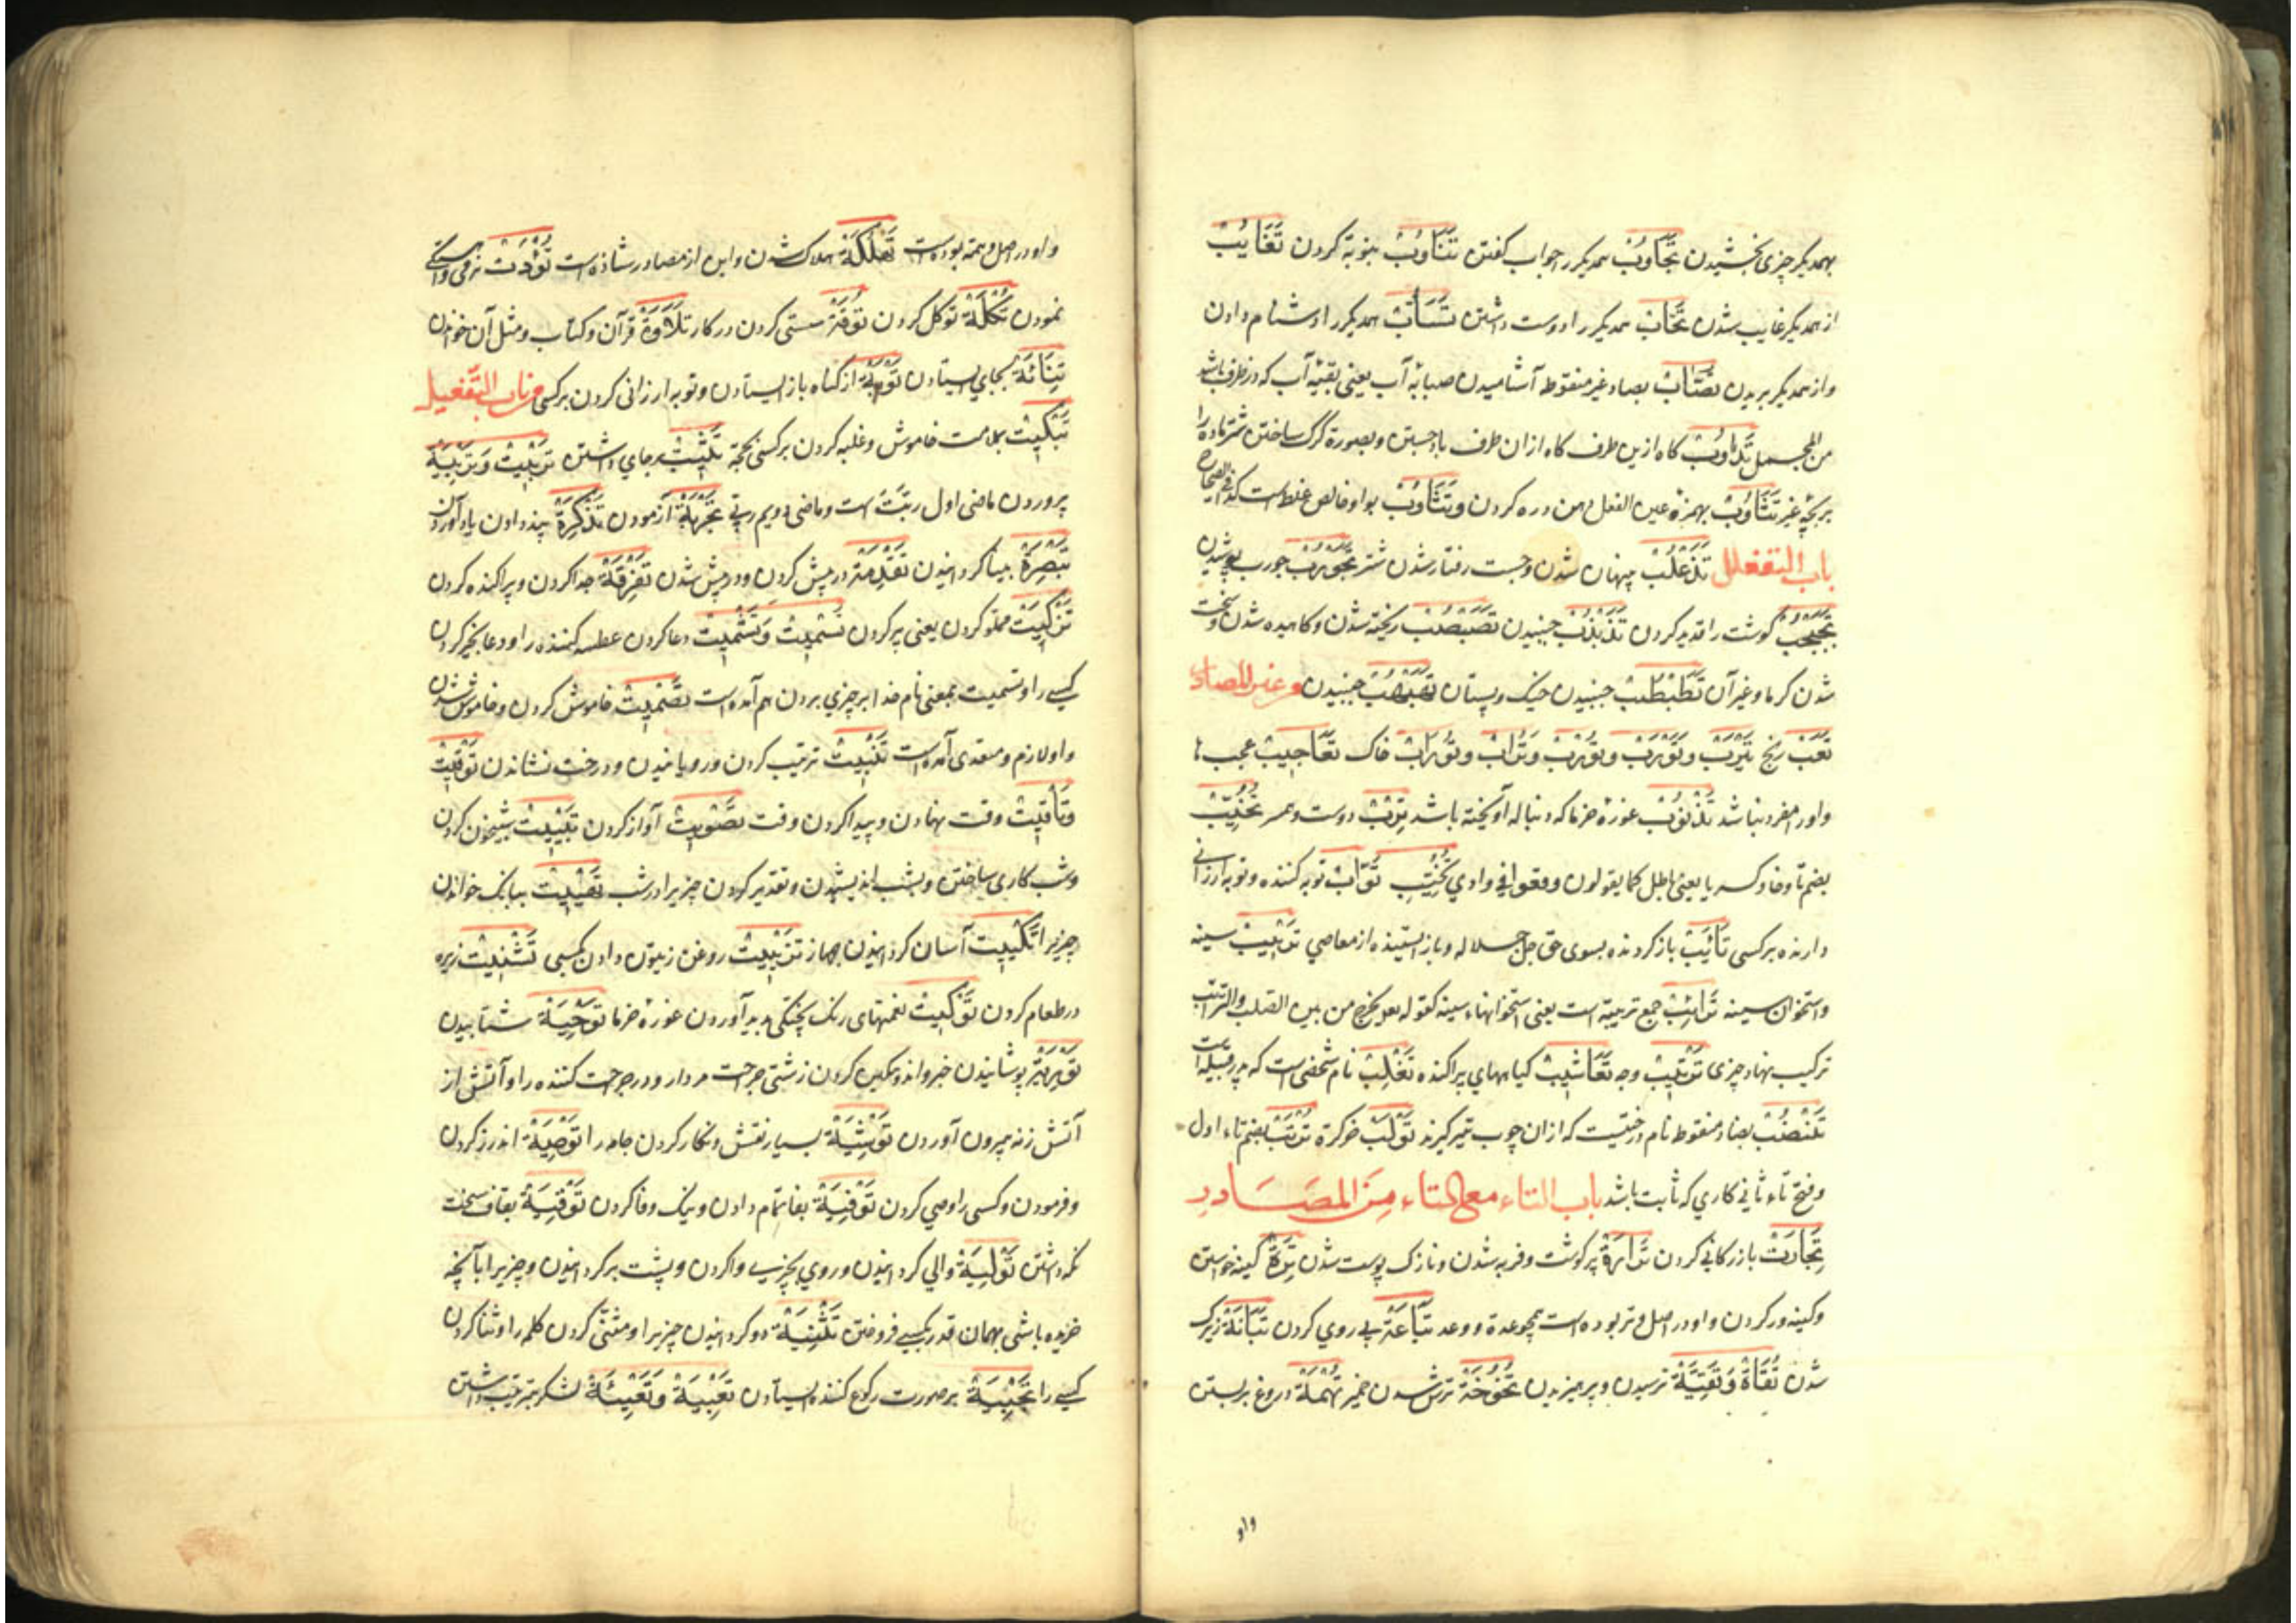 بهمدیکر چیزی بخشیدن تَجَاوُبْ همدیکر را جواب کفتن تَنَاوُبْ بنوبة کردن تَغَايُبْ
از همدیکر غایب شدن تَحَابّ همدیکر را دوست داشتن تَسَابّ همدیکر را دشنام دادن
و از همدیکر بریدن تصَابّ بصاد غیر منقوطه آشامیدن صبابهٔ آب یعنی بقیهٔ آب که در ظرف باشد
من المجمل تَذَاؤُبْ کاه ازین طرف کاه ازان طرف باد جستن و بصورة کرک ساختن شتر ماده را
بر بچهٔ غیر تَثَاؤُبْ بهمزهٔ عین الفعل دهن دره کردن و تَثَاوُبْ بواو خالص غلط است کذا فی الصحاح
باب التفعلل تَذَعْلُبْ پنهان شدن و جست رفتار شدن شتر تَجَوْرُبْ جورب پوشیدن
تَجَبْجُبْ کوشت را قدید کردن تَذَبْذُبْ جنبیدن تَصَبْصُبْ ریخته شدن و کاهیده شدن و سخت
شدن کرما و غیر آن تَطَبْطُبْ جنبیدن خیک و پستان جنبیدن و من غیر المصادر
تَعَبْ رنج تَيْرَبْ و تَوْرَبْ و تُرْبْ و تُرَابْ و تَوْرَابْ خاک تَعَاجِيبْ عجب ها
و او را مفرد نباشد تَذْنُوبْ غورهٔ خرما که دنباله آویخته باشد تِرْبْ دوست و همسر تُخُيِّبْ
بضم تا و خا و کسر یا یعنی باطل کما یقولون وقعوا فی وادي تُخُيِّبَ تَوَّابْ توبه کننده و توبه ارزانی
دارنده بر کسی تَائِبْ باز کردنده بسوی حق جل جلاله و باز ایستنده از معاصی تَرِيبْ سینه
و استخوان سینه تَرَائِبْ جمع تریبه است یعنی استخوانهاء سینه کقوله تعالی یخرج من بین الصلب والترائب
ترکیب نهاد چیزی تَرْتِيبْ وجه تَعَاشِيبْ کیاههای پراکنده تَغْلِبْ نام شخصی است که پدر قبیله است
تَنْضُبْ بضاد منقوطه نام درختیست که ازان چوب تیر کیرند تَوْلَبْ خرکره تُرْتَبْ بضم تاء اول
و فتح تاء ثانی کاری که ثابت باشد باب التاء مع التاء مِنَ المصَادر
تِجَارَتْ بازرکانی کردن تَرَارَة پرکوشت و فربه شدن و نازک پوست شدن تِرَة کینه خواستن
و کینه ور کردن و او در اصل وتر بوده است همچو عدة و وعد تَبَاعَة پی روی کردن تَبَانَة زیرک
شدن تُقَاة وَ تَقِيَّة ترسیدن و پرهیزیدن تُخُوخَة ترش شدن خمیر تُهْمَة دروغ بر بستن
واو
و او در اصل وهمة بوده است تَهْلُكَة هلاک شدن و این از مصادر شاذه است تُؤْدَتْ نرمی و آهستکی
نمودن تُكْلَة توکل کردن تُوفَة سستی کردن در کار تِلَاوَة قرآن و کتاب و مثل آن خواندن
تِنَائَة بجای ایستادن تَوْبَة از کناه باز ایستادن و توبه ارزانی کردن بر کسی من باب التَّفعيل
تَبْكِيتْ بملامت خاموش و غلبه کردن بر کسی بحجة تَثْبِيتْ بر جای داشتن تَرْبِيتْ وَ تَرْبِيَة
پروردن ماضی اول ربَّتَ است و ماضی دویم ربّی تَجْرِبَة آزمودن تَذْكِرَة پند دادن یاد آوردن
تَبْصِرَة بینا کردانیدن تَقْدِمَة در پیش کردن و در پیش شدن تَفْرِقَة جدا کردن و پراکنده کردن
تَزْكِيتْ مملو کردن یعنی پر کردن تَسْمِيتْ وَ تَشْمِيتْ دعا کردن عطسه کننده را و دعا بخیر کردن
کسی را و تسمیت بمعنی نام خدا بر چیزی بردن هم آمده است تَصْمِيتْ خاموش کردن و خاموش شدن
و او لازم و متعدی آمده است تَنْبِيتْ ترتیب کردن و رویانیدن و درخت نشاندن تَوْقِيتْ
وتَأْقِيتْ وقت نهادن و پیدا کردن وقت تَصْوِيتْ آواز کردن تَبْيِيتْ شبیخون کردن
و شب کاری ساختن و بشب اندیشیدن و تقدیر کردن چیزیرا در شب تَهْيِيتْ ببانک خواندن
چیزیرا تَكْيِيتْ آسان کردانیدن جهاز تَزْيِيتْ روغن زیتون دادن بکسی تَشْبِيتْ زیره
در طعام کردن تَوْكِيتْ نقطهای رنک پختکی پدید آوردن غورهٔ خرما تَوْحِيَة شتابیدن
تَوْرِيَة پوشانیدن خبر و اندوهکین کردن زشتی جراحت مر دار و در جراحت کننده را و آتش از
آتش زنه بیرون آوردن تَوْشِيَة بسیار نقش و نکار کردن جامه را تَوْصِيَة اندرز کردن
و فرمودن و کسی را وصی کردن تَوْفِيَة بفا تمام دادن و نیک وفا کردن تَوْقِيَة بقاف سخت
نکه داشتن تَوْلِيَة والی کردانیدن و روی بچیزی وا کردن و پشت بر کردانیدن و چیزیرا بآنچه
خریده باشی بهمان قدر بکسی فروختن تَثْنِيَة دو کردانیدن چیزیرا و مثنی کردن کلمه را و ثنا کردن
کسی را تَجْبِيَة بر صورت رکوع کننده ایستادن تَعْبِيَة وَ تَعْبِئَة لشکر بترتیب داشتن